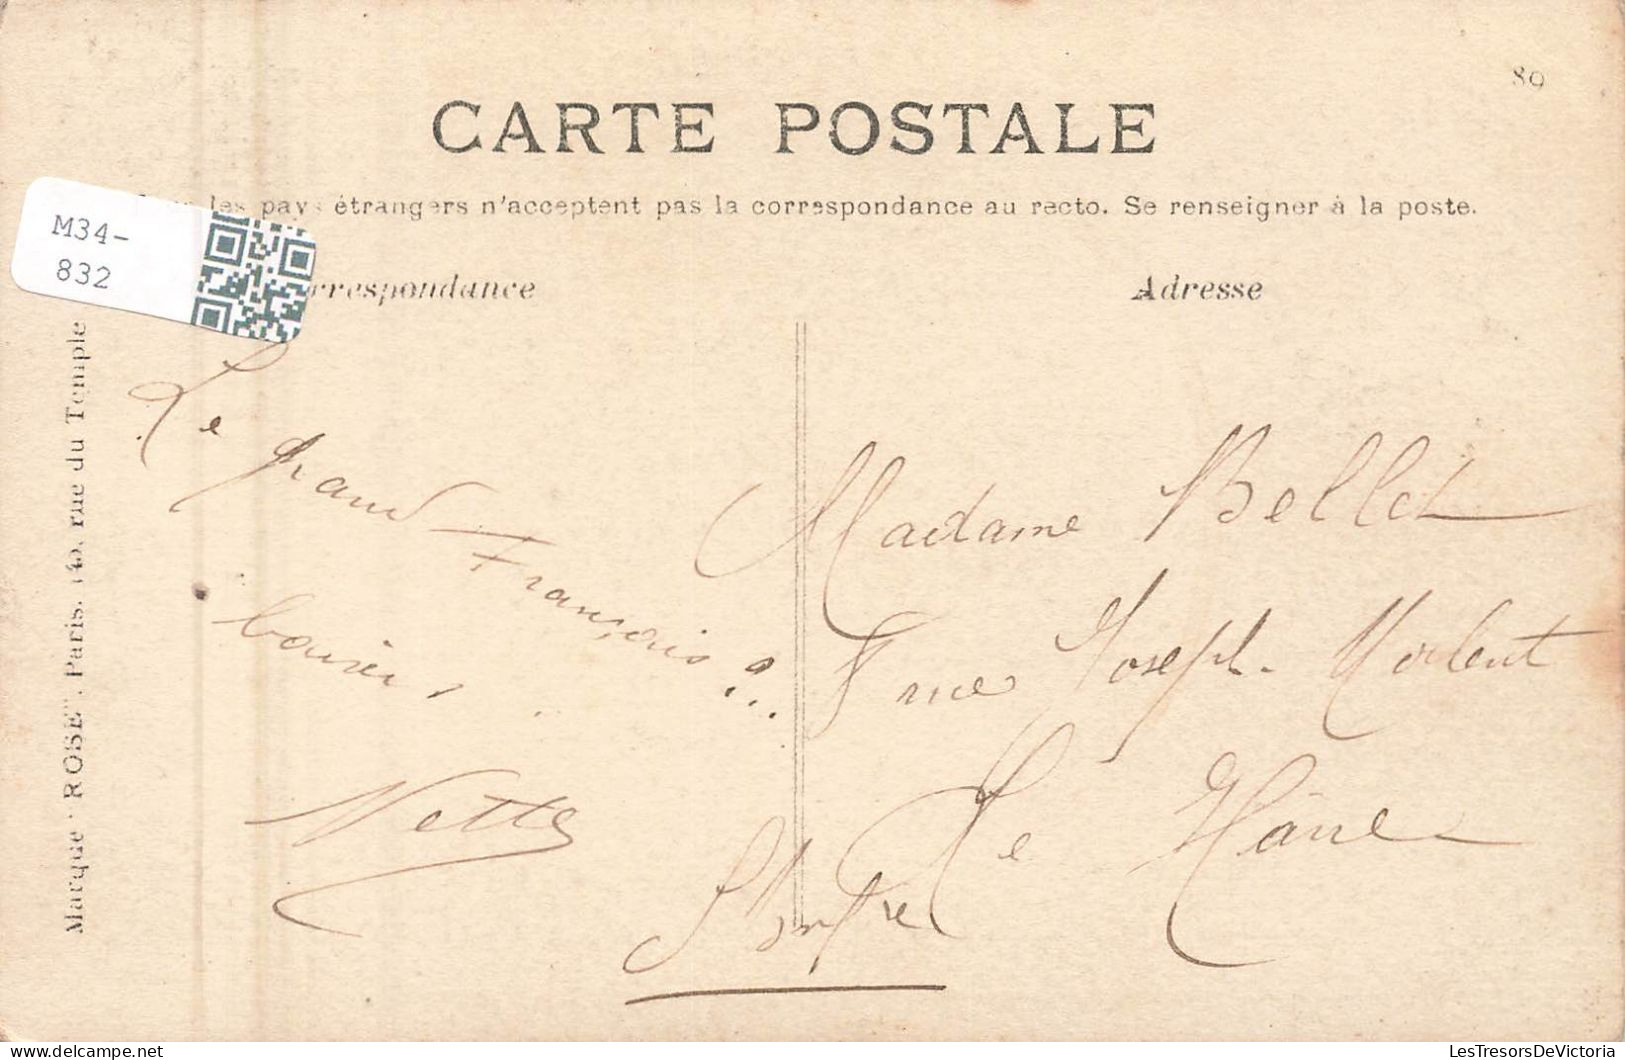 89
CARTE POSTALE
les pays étrangers n'acceptent pas la correspondance au recto. Se renseigner à la poste.
M34-
832
rrespondance
Adresse
Marque "ROSE". Paris. rue du Temple
Le grand
Français ?..
Nette
Madame Bellet
rue Joseph Morlent
Le Hâvre
LesTresorsDeVictoria